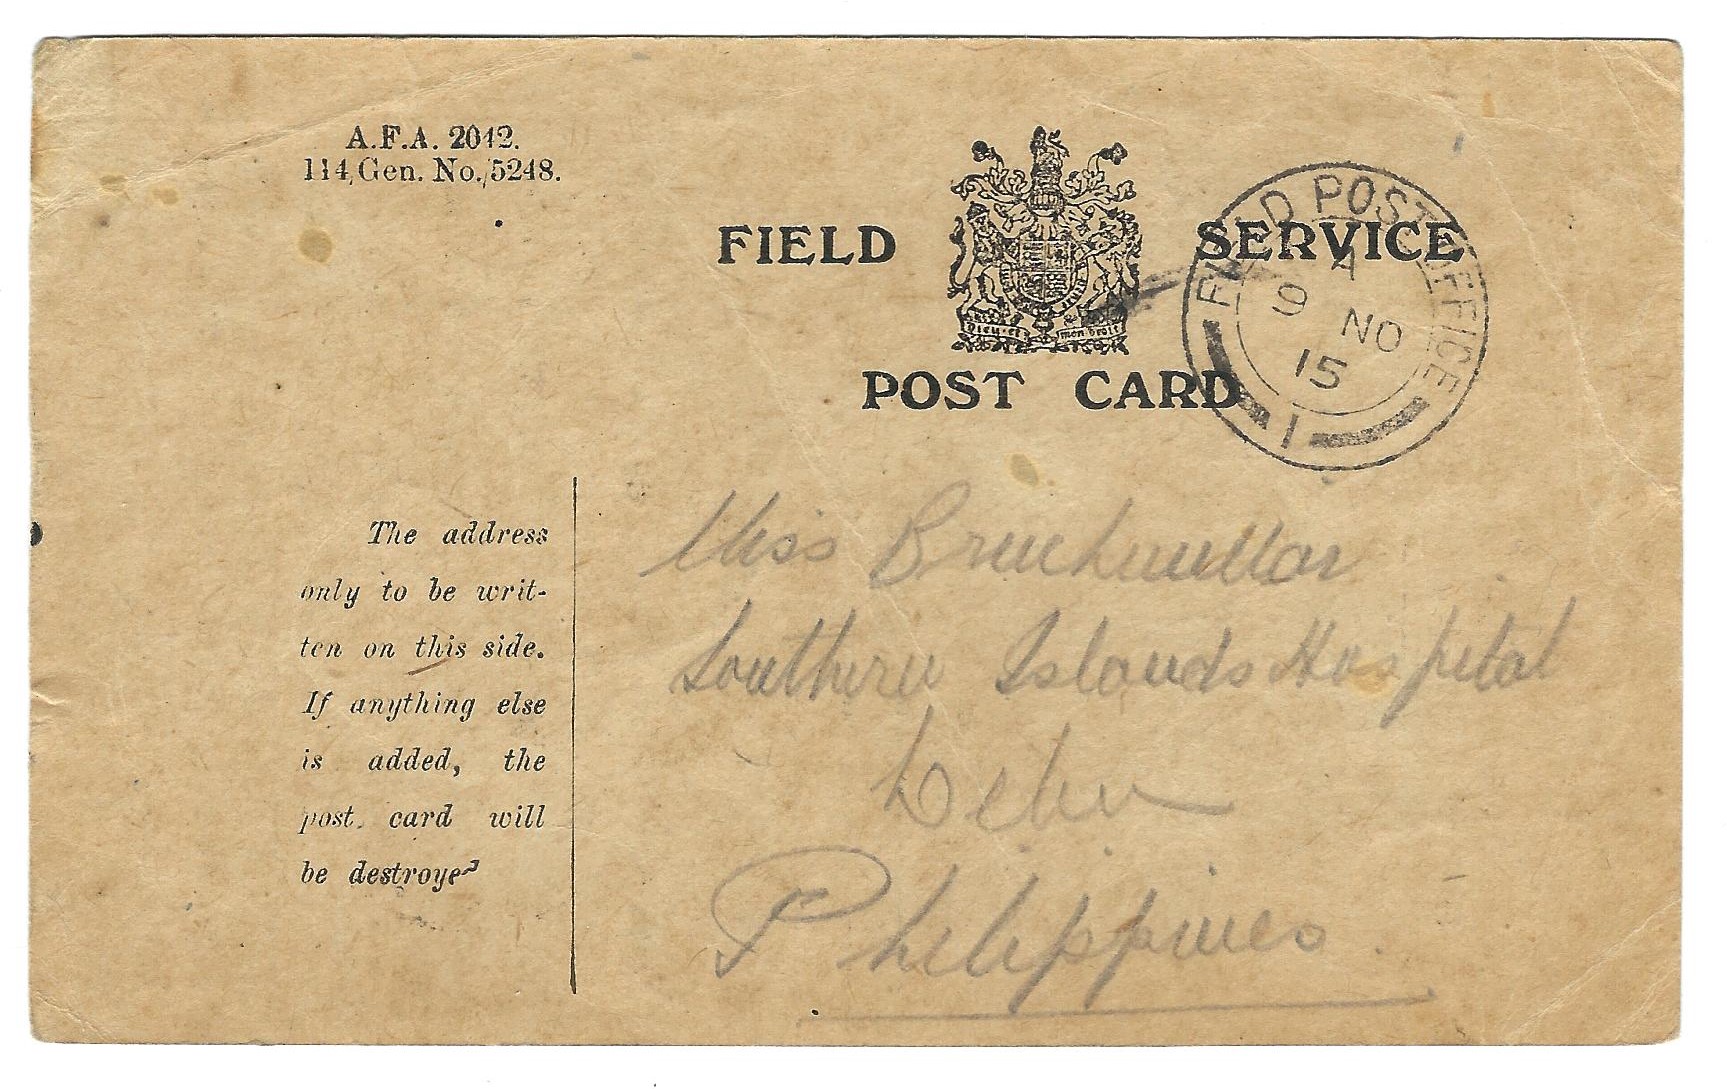 A.F.A. 2042.
114, Gen. No./5248.
FIELD SERVICE
Dieu et mon droit
POST CARD
FIELD POST OFFICE
A
9 NO
15
1
The address
only to be writ-
ten on this side.
If anything else
is added, the
post card will
be destroyed
Miss
Southern Islands Hospital
Cebu
Philippines.